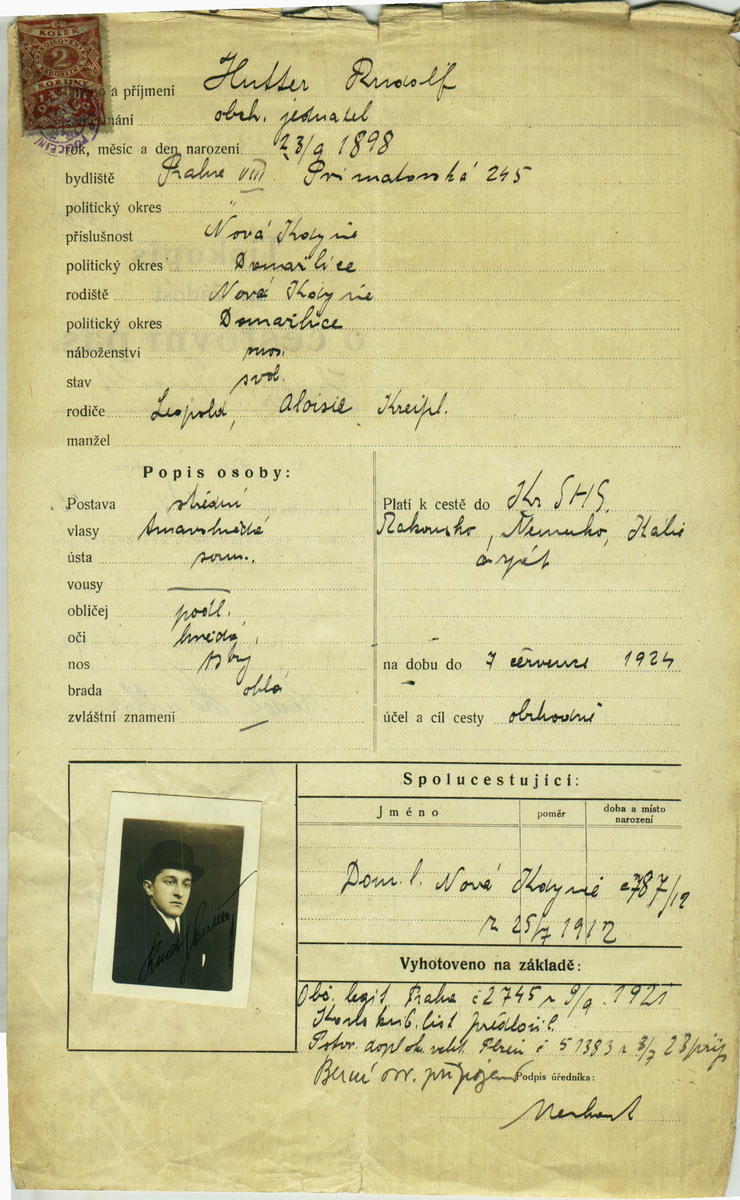 KOLEK
2
KORUNY
a příjmení Hutter Rudolf
obch. jednatel
rok, měsíc a den narození 23/9 1898
bydliště Praha VIII Primatorská 245
politický okres "
příslušnost Nová Kdyně
politický okres Domažlice
rodiště Nová Kdyně
politický okres Domažlice
náboženství mos.
stav svob.
rodiče Leopold, Aloisie Kreipl.
manžel
Popis osoby:
Postava střední
vlasy tmavohnědé
ústa soum.
vousy —
obličej podl.
oči hnědé,
nos
brada oblá
zvláštní znamení —
Platí k cestě do Kr SHS,
Rakousko, Německo, Italie
a zpět
na dobu do 7 července 1924
účel a cíl cesty obchodně
Spolucestující:
Jméno poměr doba a místo narození
Dom. l. Nová Kdyně č 787/12
z 25/7 1912
Vyhotoveno na základě:
Obč. legit. Praha č 2745 z 9/9 1921
Konskrib. list předložil.
Potvr. dopl. ok. velit. Plzeň č 51383 z 3/7 23 přip
Berní osv. připojeno
Podpis úředníka: